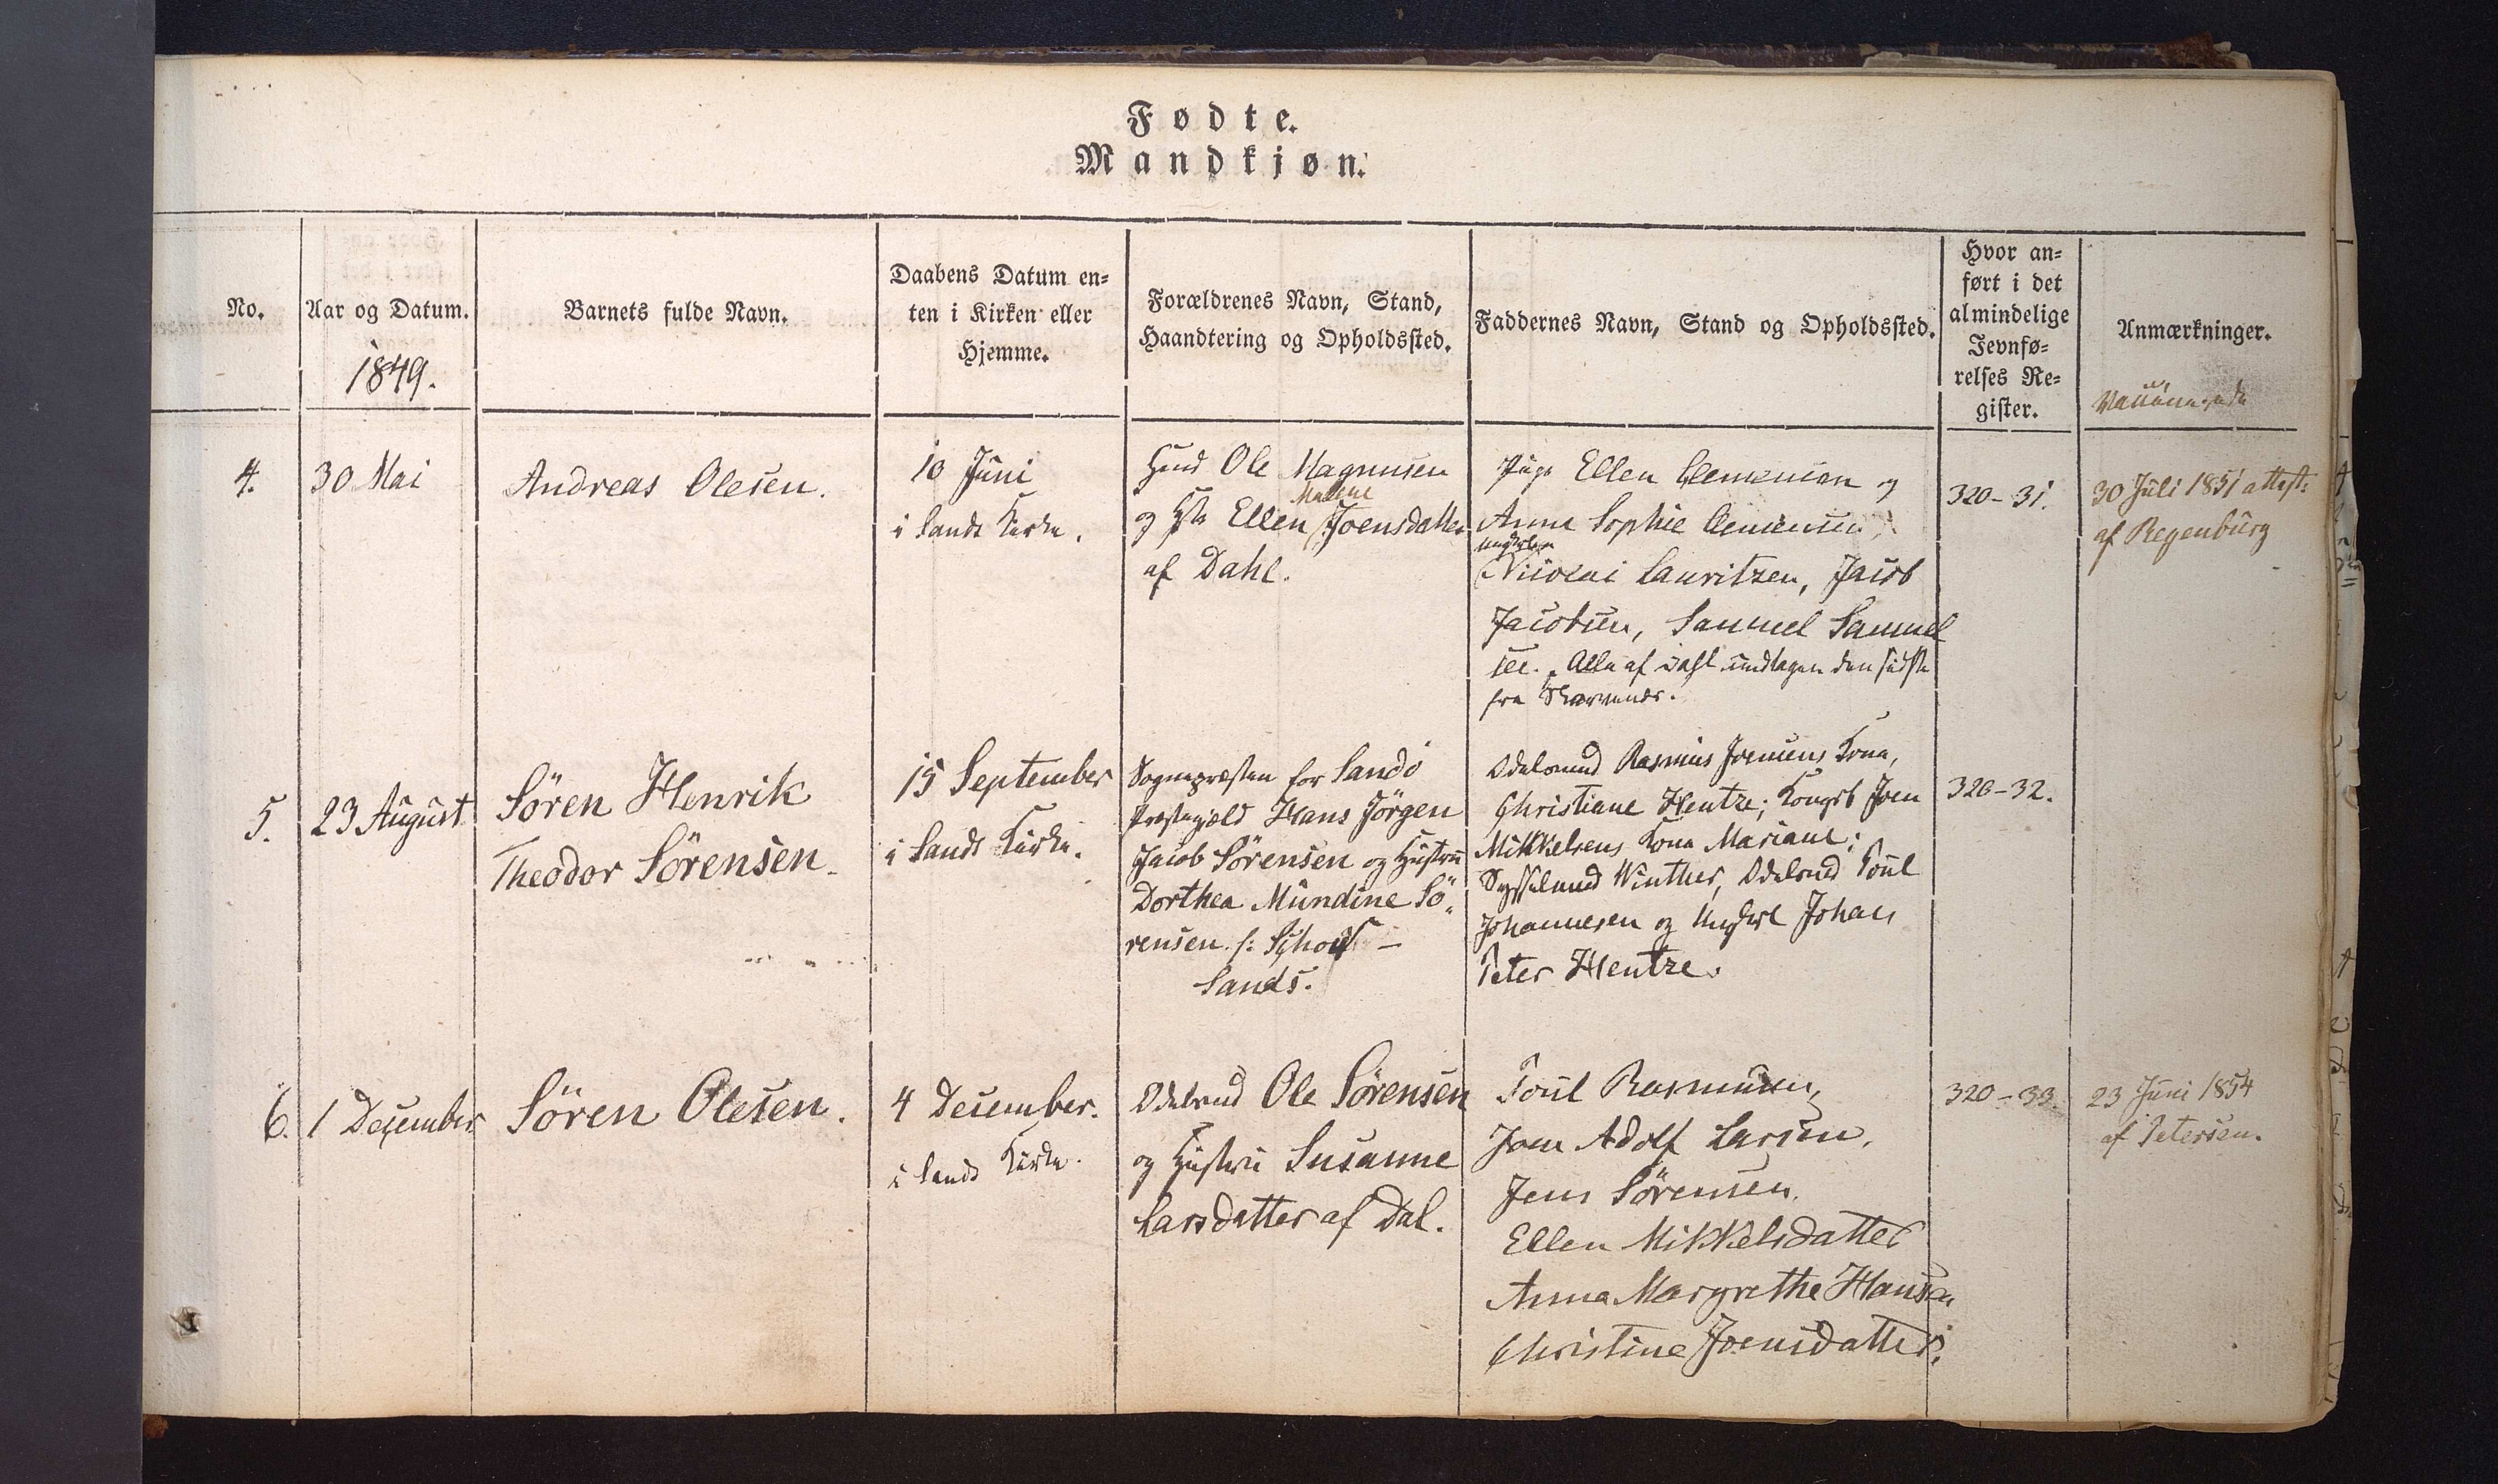 Fødte.
Mandkjøn.
No.
Aar og Datum.
1849.
Barnets fulde Navn.
Daabens Datum en-
ten i Kirken eller
Hjemme.
Forældrenes Navn, Stand,
Haandtering og Opholdssted.
Faddernes Navn, Stand og Opholdssted.
Hvor an-
ført i det
almindelige
Jevnfø-
relses Re-
gister.
Anmærkninger.
4.
30 Mai
Andreas Olesen.
10 Juni
i Sands Kirke.
Huusmd Ole Magnusen
Malene
og Hst Ellen Joensdatter
af Dahl.
Pige Ellen Clemensen og
Anna Sophie Clemensen,
Ungkarle
Nicolai Lauritzen, Jacob
Jacobsen, Samuel Samuel
sen. Alle af Dahl undtagen den sidste
fra Skarvenæs.
320-31.
30 Juli 1851 attest:
af Regenburg
5.
23 August
Sören Henrik
Theodor Sörensen.
15 September
i Sands Kirke.
Sognepræsten for Sandö
Præstegjæld Hans Jörgen
Jacob Sörensen og Hustru
Dorthea Mundine Sö-
rensen f:
Sands.
Odelsmd Rasmus Joensens Kone,
Christiane Hentze; Kongsb Joen
Mikkelsens Kone Mariane;
Sysselmd Winther, Odelsmd Poul
Johannesen og Ungkarl Johan
Peter Hentze.
320-32.
6.
1 December
Sören Olesen.
4 December.
i Sands Kirke.
Odelsmd Ole Sörensen
og Hustru Susanne
Larsdatter af Dal.
Poul Rasmusen,
Joen Adolf Larsen,
Jens Sörensen.
Ellen Mikkelsdatter
Anna Margrethe Hansen
Christine Joensdatter.
320-33.
23 Juni 1854
af Petersen.